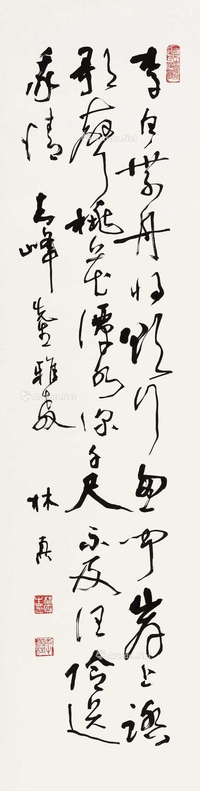 李白乘舟将欲行忽闻岸上踏
歌声桃花潭水深千尺不及汪伦送
我情 志峰先生雅教
林真